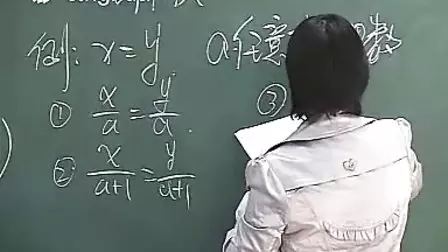 例: x=y a任意 数
① x/a = y/a
② x/(a+1) = y/(a+1)
③